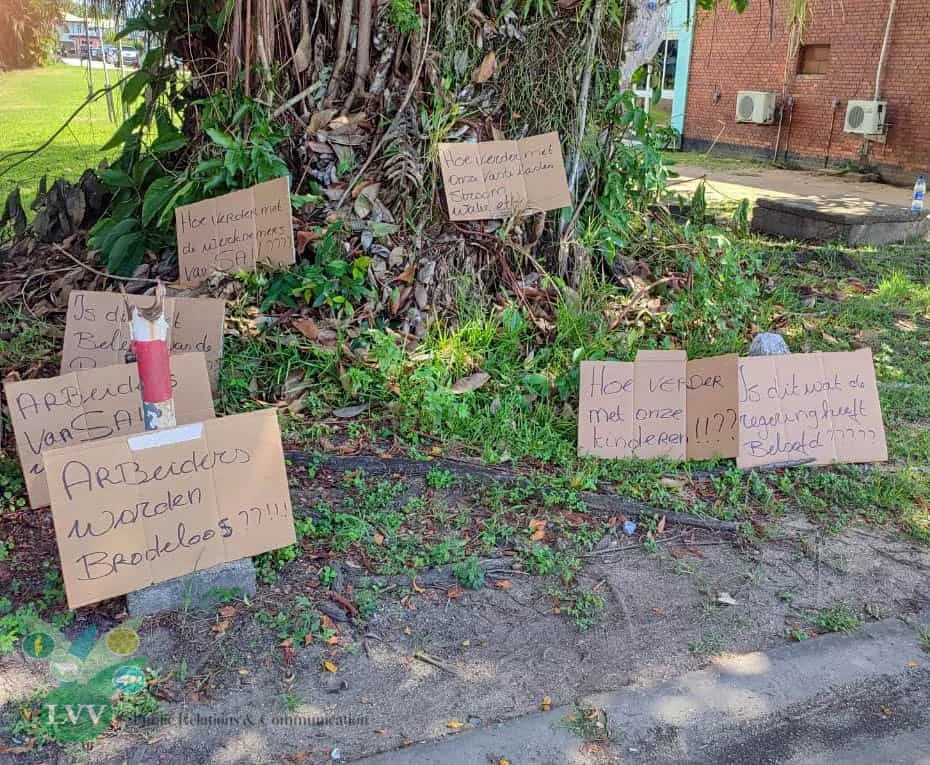 Hoe verder met
onze vaste lasten
Stroom
Water, etc
Hoe verder met
de werknemers
van SAI ????
Is dit
Beleid van de
ARBeiders
van SAI
ARBeiders
worden
Brodeloos ??!!!
Hoe verder
met onze
kinderen !!??
Is dit wat de
regering heeft
Beloofd ?????
LVV Public Relations & Communication